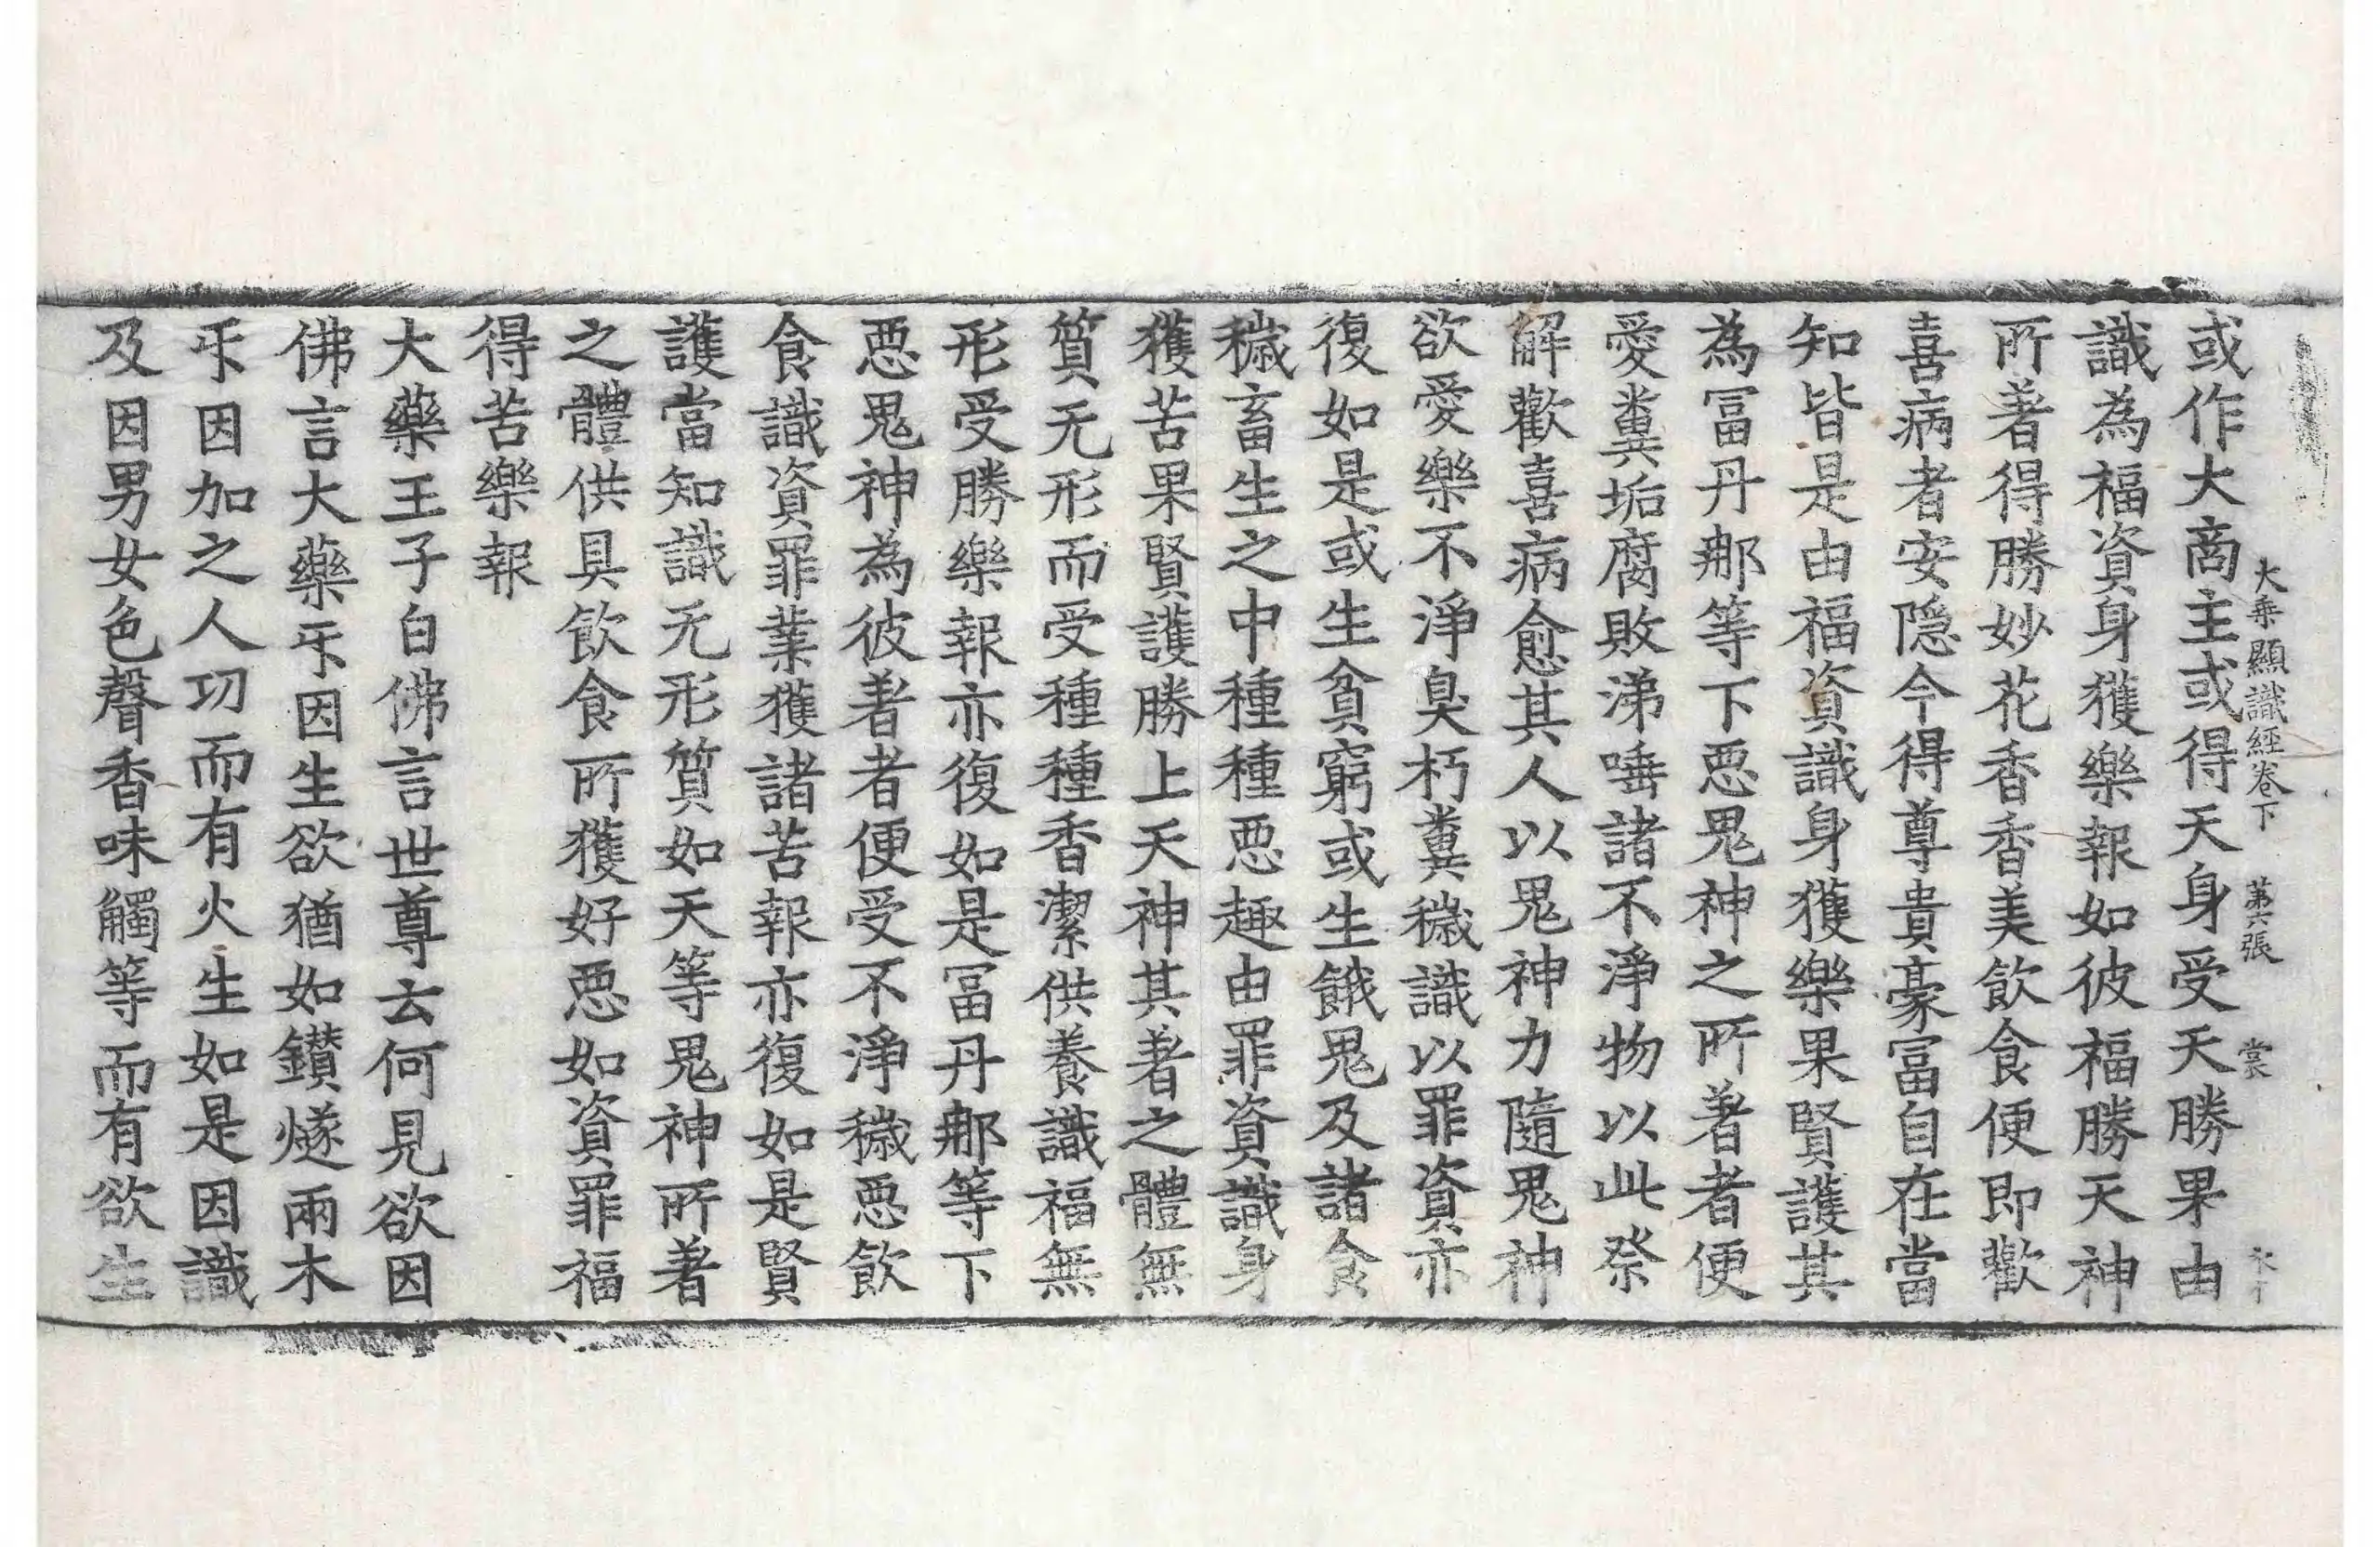 大乗顯識經卷下 苐六張 裳
或作大商主或得天身受天勝果由
識為福資身獲樂報如彼福勝天神
所著得勝妙花香香美飲食便即歡
喜病者安隠今得尊貴豪冨自在當
知皆是由福資識身獲樂果賢護其
為冨丹那等下惡鬼神之所著者便
愛糞垢腐敗涕唾諸不淨物以此祭
解歡喜病愈其人以鬼神力隨鬼神
欲愛樂不淨臭朽糞穢識以罪資亦
復如是或生貧窮或生餓鬼及諸食
穢畜生之中種種惡趣由罪資識身
獲苦果賢護勝上天神其著之體無
質无形而受種種香潔供養識福無
形受勝樂報亦復如是冨丹那等下
惡鬼神為彼著者便受不淨穢惡飲
食識資罪業獲諸苦報亦復如是賢
護當知識无形質如天等鬼神所著
之體供具飲食所獲好惡如資罪福
得苦樂報
大藥王子白佛言世尊云何見欲因
佛言大藥㸦因生欲猶如鑚燧兩木
㸦因加之人功而有火生如是因識
及因男女色聲香味觸等而有欲生